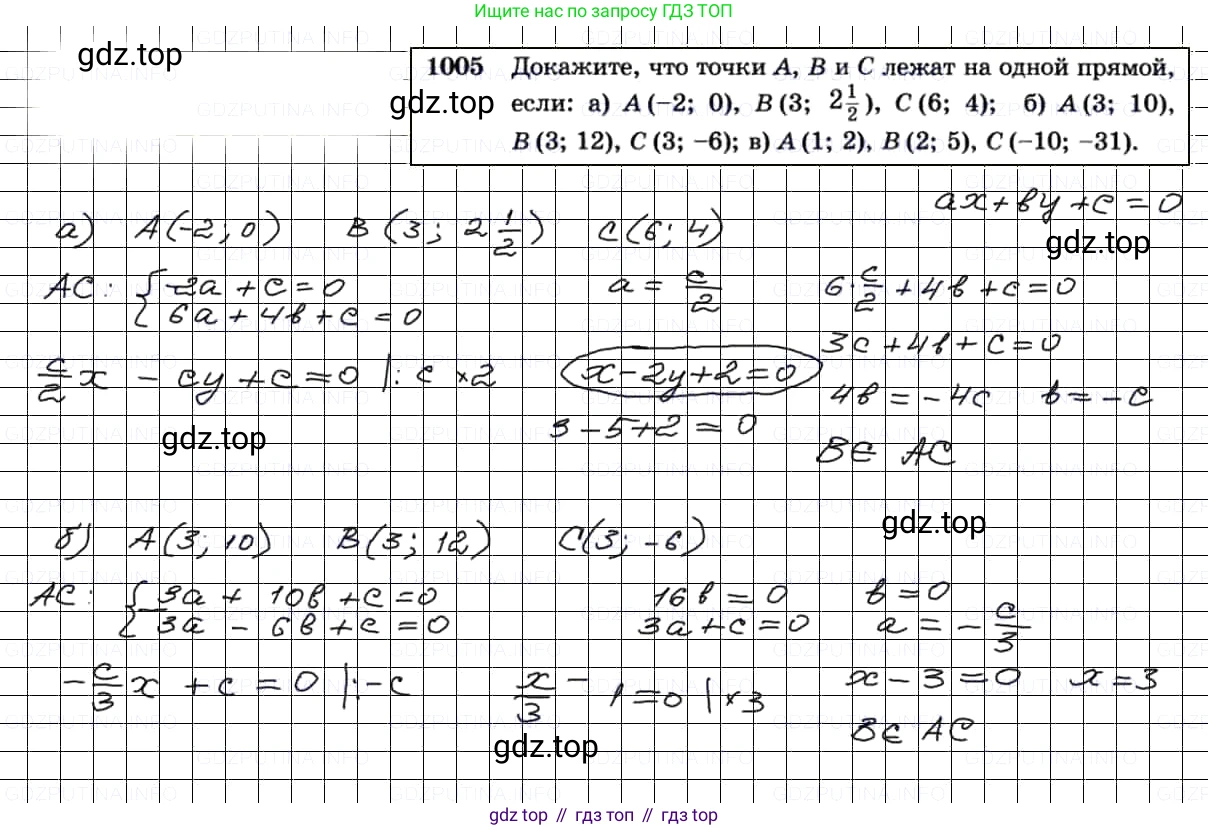 Ищите нас по запросу ГДЗ ТОП
gdz.top
1005 Докажите, что точки A, B и C лежат на одной прямой,
если: а) A (−2; 0), B (3; 2 1/2), C (6; 4); б) A (3; 10),
B (3; 12), C (3; −6); в) A (1; 2), B (2; 5), C (−10; −31).
ax + вy + c = 0
а) A(-2; 0) B (3; 2 1/2) C(6; 4)
gdz.top
AC: { -2a + c = 0 a = c/2 6·c/2 + 4в + c = 0
6a + 4в + c = 0
3c + 4в + c = 0
c/2 x - cy + c = 0 |: c ×2 x - 2y + 2 = 0
4в = -4c в = -c
3 - 5 + 2 = 0
gdz.top
B ∈ AC
gdz.top
б) A(3; 10) B(3; 12) C(3; -6)
AC: { 3a + 10в + c = 0 16в = 0 в = 0
3a - 6в + c = 0 3a + c = 0 a = - c/3
- c/3 x + c = 0 |: -c x/3 - 1 = 0 | ×3 x - 3 = 0 x = 3
B ∈ AC
gdz.top
gdz top // гдз топ // гдз top
GDZPUTINA.INFO